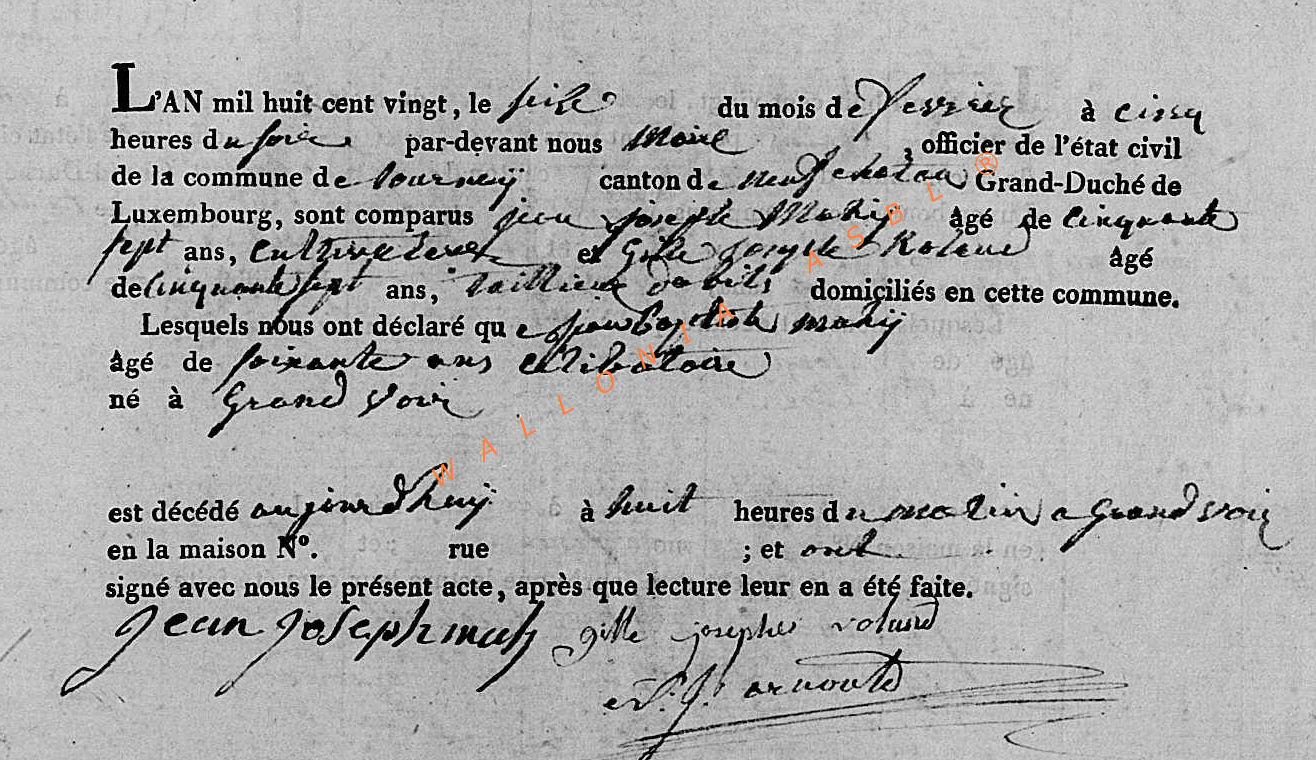 L'AN mil huit cent vingt, le seize du mois de fevrier à cinq
heures du soir par-devant nous Maire , officier de l'état civil
de la commune de tournay canton de neufchatau Grand-Duché de
Luxembourg, sont comparus jean joseph Mahij âgé de cinquante
sept ans, Cultivateur et Gille joseph Roland âgé
de cinquante sept ans, taillieur dabits domiciliés en cette commune.
Lesquels nous ont déclaré que jean baptiste mahij
âgé de soixante ans celibataire
né à Grand Voir
est décédé aujourdhuij à huit heures du matin a Grand voir
en la maison N°. rue ; et ont
signé avec nous le présent acte, après que lecture leur en a été faite.
Jean Joseph mahy gille josephe roland
arnould
WALLONIA ASBL ®